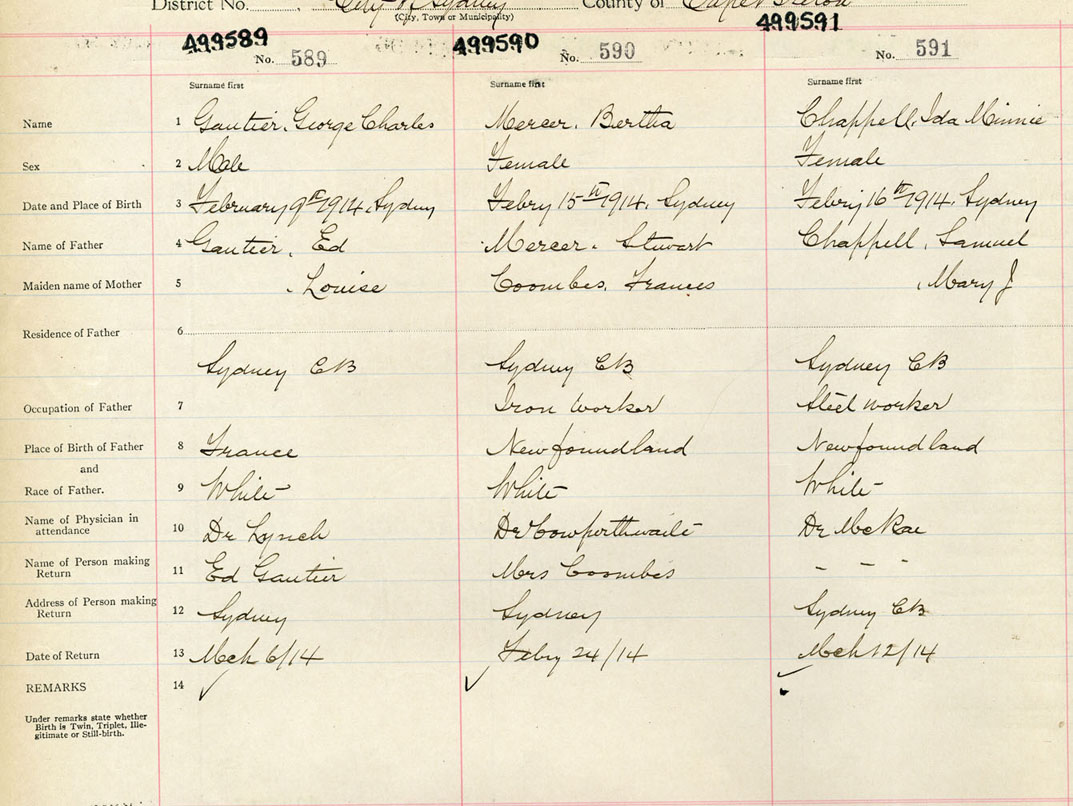 District No. City of Sydney County of Cape Breton
(City, Town or Municipality)
499589 499590 499591
No. 589 No. 590 No. 591
Surname first Surname first Surname first
Name 1 Gautier, George Charles Mercer, Bertha Chappell, Ida Minnie
Sex 2 Male Female Female
Date and Place of Birth 3 February 9th 1914, Sydney Febry 15th 1914, Sydney Febry 16th 1914, Sydney
Name of Father 4 Gautier, Ed Mercer, Stewart Chappell, Samuel
Maiden name of Mother 5 , Louise Coombes, Frances , Mary J
Residence of Father 6
Sydney CB Sydney CB Sydney CB
Occupation of Father 7 Iron worker Steel worker
Place of Birth of Father 8 France Newfoundland Newfoundland
and
Race of Father. 9 White White White
Name of Physician in
attendance 10 Dr Lynch Dr Cowperthwaite Dr McRae
Name of Person making
Return 11 Ed Gautier Mrs Coombes - - -
Address of Person making
Return 12 Sydney Sydney Sydney CB
Date of Return 13 Mch 6/14 Febry 24/14 Mch 12/14
REMARKS 14
Under remarks state whether
Birth is Twin, Triplet, Ille-
gitimate or Still-birth.